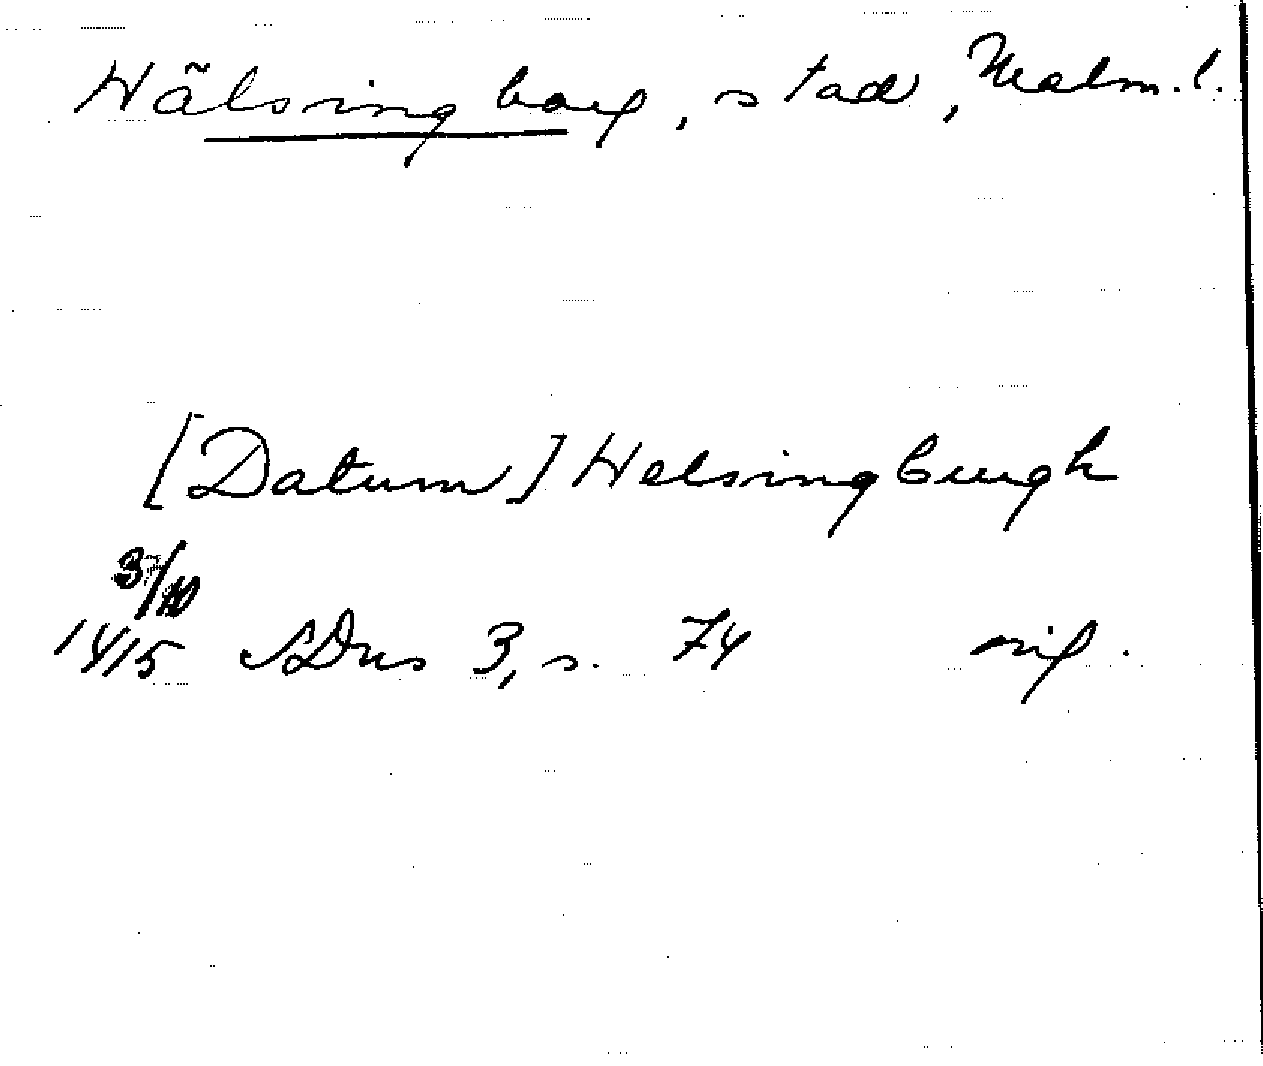 Hälsingborg, stad, Malm. l.
[Datum] Helsingburgh
3/10
1415 SDns 3, s. 74 orig.